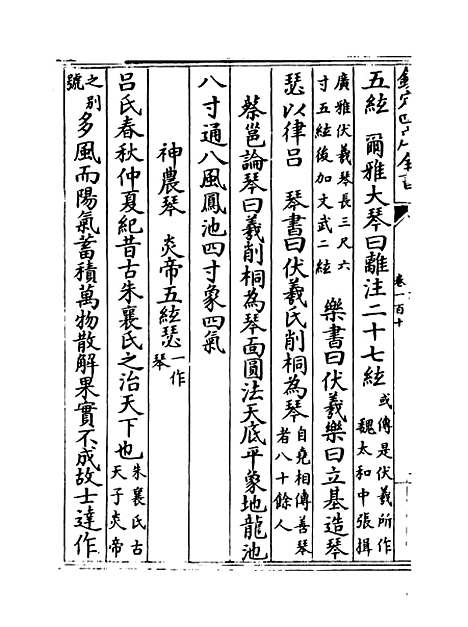 欽定四庫全書
卷一百十
五絃 爾雅大琴曰離注二十七絃 或傳是伏羲所作 魏太和中張揖
廣雅伏羲琴長三尺六 寸五絃後加文武二絃 樂書曰伏羲樂曰立基造琴
瑟以律呂 琴書曰伏羲氏削桐為琴 自堯相傳善琴 者八十餘人
蔡邕論琴曰羲削桐為琴面圓法天底平象地龍池
八寸通八風鳳池四寸象四氣
神農琴 炎帝五絃瑟 一作 琴
呂氏春秋仲夏紀昔古朱襄氏之治天下也 朱襄氏古 天子炎帝
之别 號 多風而陽氣蓄積萬物散解果實不成故士達作